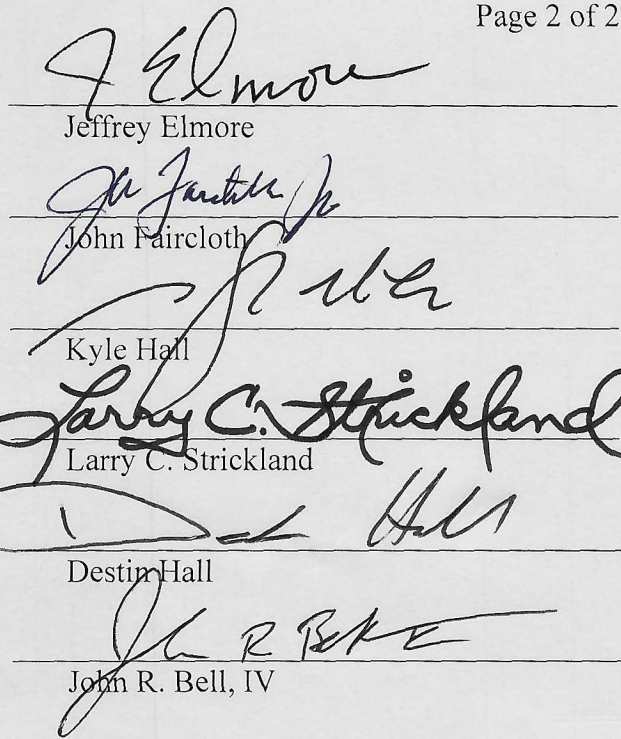 Page 2 of 2
J Elmore
Jeffrey Elmore
John Faircloth Jr
John Faircloth
Kyle Hall
Larry C. Strickland
Larry C. Strickland
Hall
Destin Hall
John R Bell
John R. Bell, IV